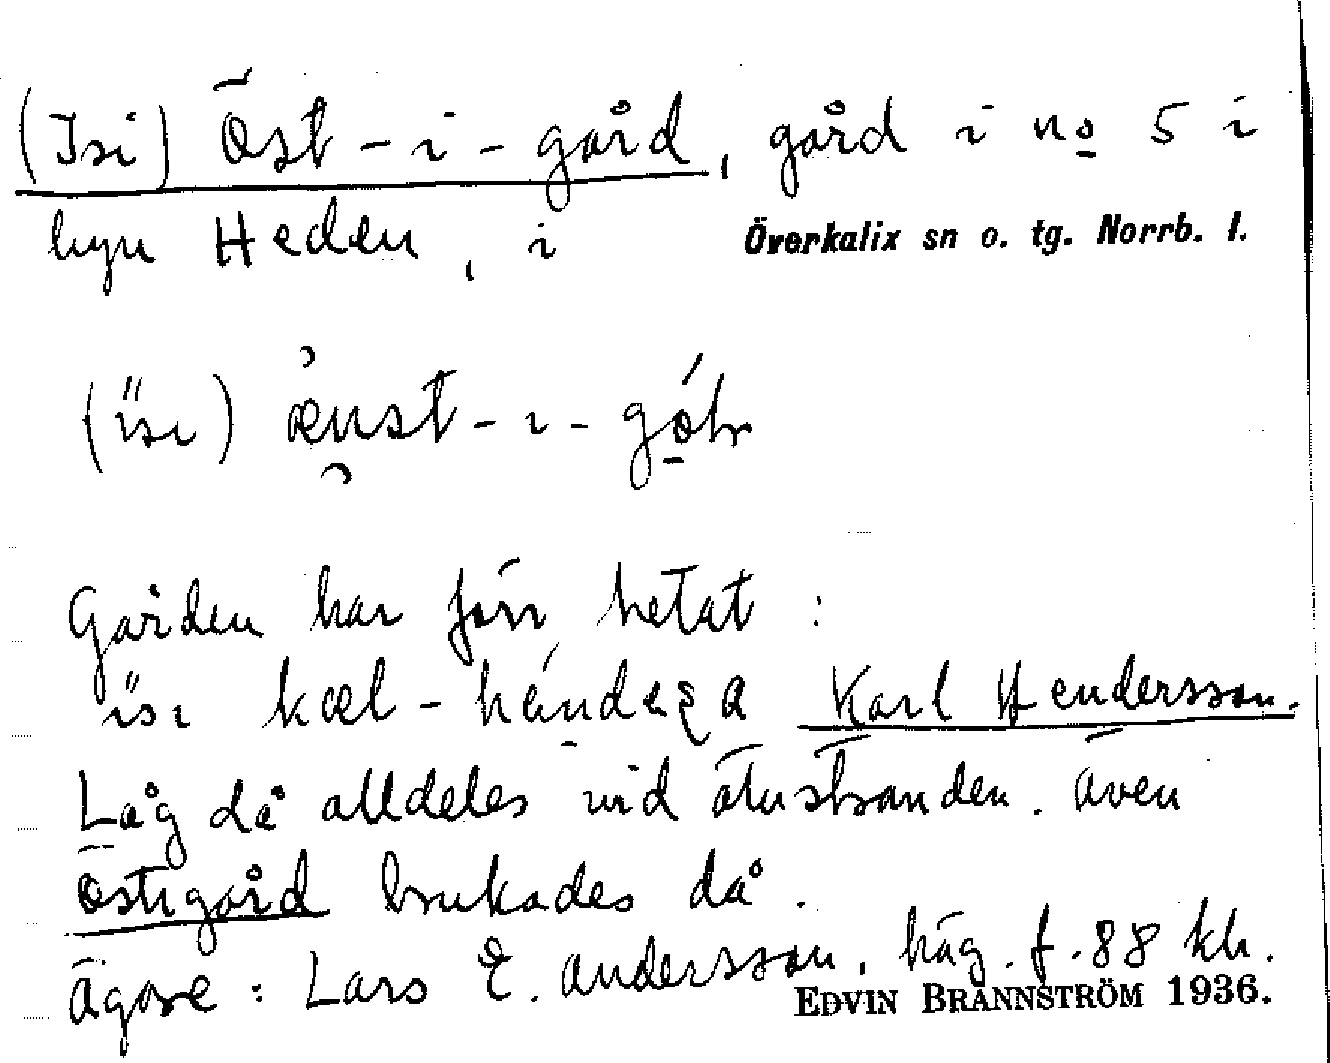 (Isi) Öst-i-gård, gård i no 5 i
byn Heden, i Överkalix sn o. tg. Norrb. l.
(isi) œust-ı-gó̱ḷr
Gården har förr hetat :
isi kæl-hándeʂa Karl Hendersson.
Låg då alldeles vid älvstranden. Även
Östigård brukades då.
Ägare : Lars E. Andersson, häg. f. 88 kh.
EDVIN BRÄNNSTRÖM 1936.